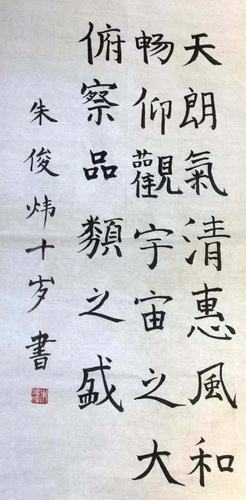 天朗氣清惠風和
畅仰觀宇宙之大
俯察品類之盛
朱俊炜十岁書